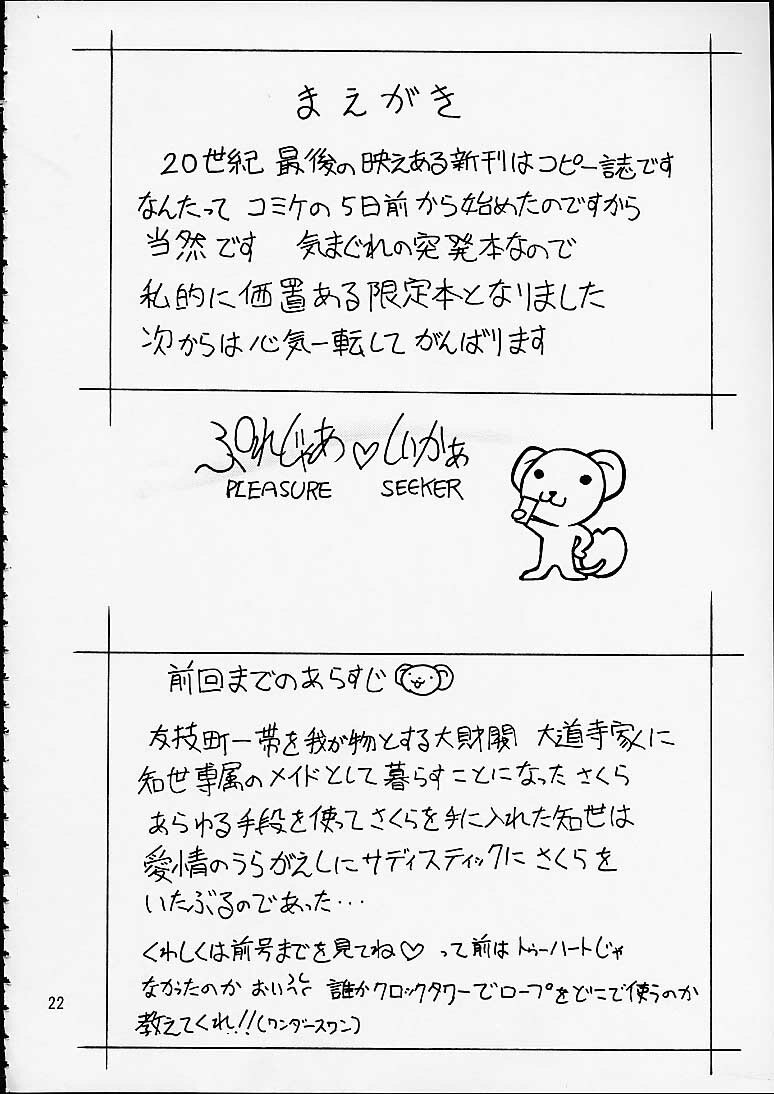 まえがき
20世紀 最後の映えある新刊はコピー誌です
なんたって コミケの5日前から始めたのですから
当然です 気まぐれの突発本なので
私的に価置ある限定本となりました
次からは心気一転してがんばります
ぷれじゃあ♡しいかぁ
PLEASURE SEEKER
前回までのあらすじ
友技町一帯を我が物とする大財閥 大道寺家に
知世専属のメイドとして暮らすことになったさくら
あらゆる手段を使ってさくらを手に入れた知世は
愛情のうらがえしにサディスティックにさくらを
いたぶるのであった…
くわしくは前号までを見てね♡ って前はトゥーハートじゃ
なかったのか おいっ 誰かクロックタワーでロープをどこで使うのか
教えてくれ!!(ワンダースワン)
22